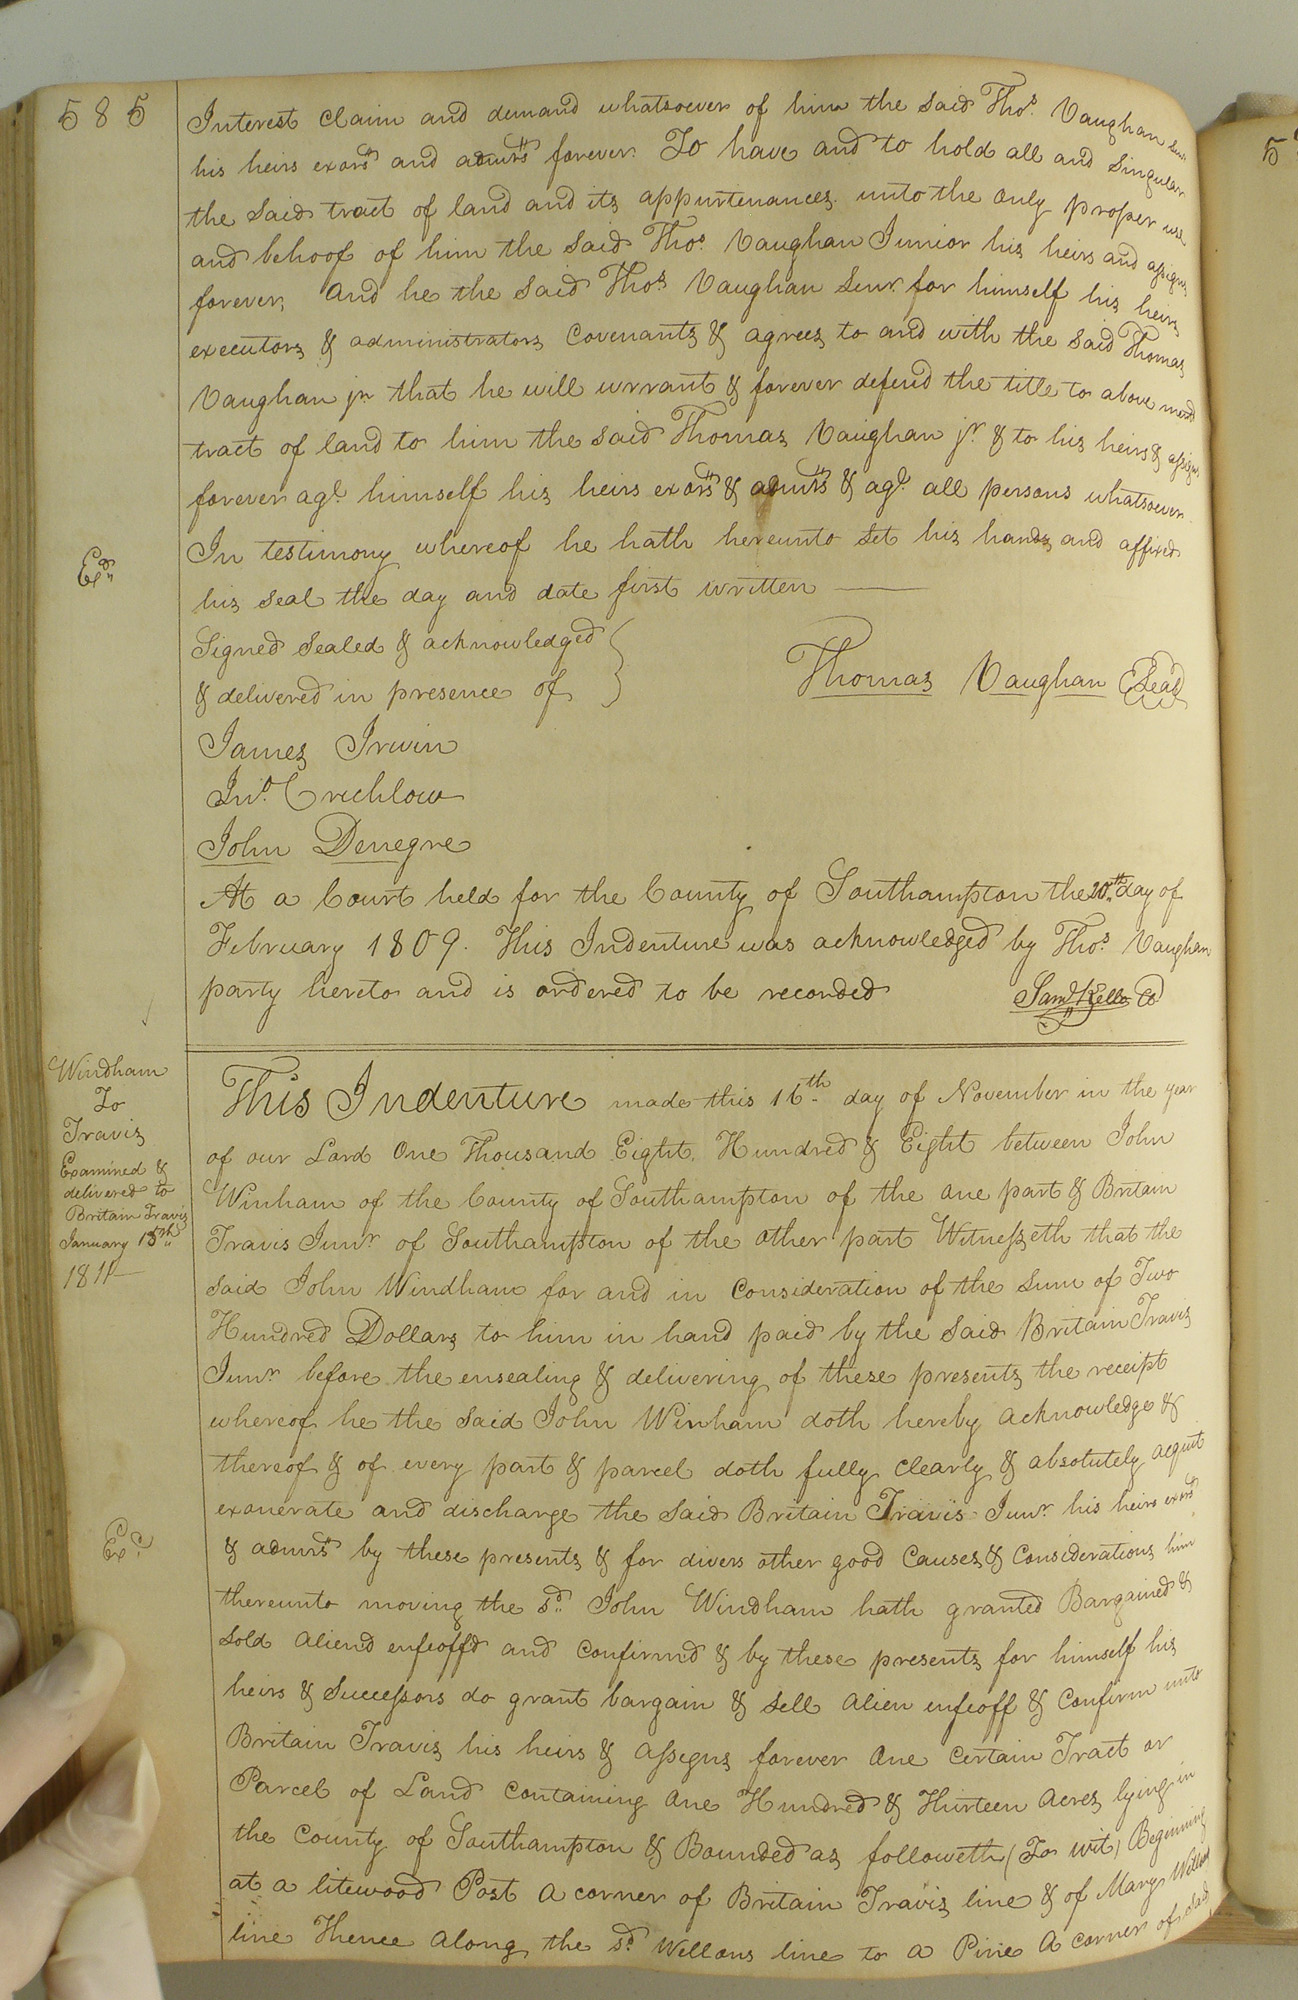 585
Interest claim and demand whatsoever of him the said Thos. Vaughan Senr
his heirs exors and admrs forever. To have and to hold all and Singular
the said tract of land and its appurtenances unto the only proper use
and behoof of him the said Thos. Vaughan Junior his heirs and assigns
forever, and he the said Thos. Vaughan Senr. for himself his heirs
executors & administrators Covenants & agrees to and with the said Thomas
Vaughan jr. that he will warrant & forever defend the title to above mend
tract of land to him the said Thomas Vaughan jr. & to his heirs & assigns
forever agt. himself his heirs exors & admrs & agt. all persons whatsoever
In testimony whereof he hath hereunto set his hands and affixed
his seal the day and date first written
Exd.
Signed sealed & acknowledged
& delivered in presence of
Thomas Vaughan Seal
James Irwin
Jno. Crichlow
John Denegre
At a Court held for the County of Southampton the 20th day of
February 1809. This Indenture was acknowledged by Thos. Vaughan
party hereto and is ordered to be recorded
Saml. Kello C
Windham
To
Travis
Examined &
delivered to
Britain Travis
January 15th
1811
This Indenture made this 16th day of November in the year
of our Lord One Thousand Eight Hundred & Eight between John
Winham of the County of Southampton of the one part & Britain
Travis Junr. of Southampton of the other part Witnesseth that the
said John Windham for and in consideration of the sum of Two
Hundred Dollars to him in hand paid by the said Britain Travis
Junr. before the ensealing & delivering of these presents the receipt
whereof he the said John Winham doth hereby acknowledge &
thereof & of every part & parcel doth fully clearly & absolutely acquit
exonerate and discharge the said Britain Travis Junr. his heirs exors
& admrs by these presents & for divers other good causes & considerations him
thereunto moving the sd. John Windham hath granted Bargained &
Exd.
sold aliend enfeoffd and confirmd & by these presents for himself his
heirs & Successors do grant bargain & sell alien enfeoff & confirm unto
Britain Travis his heirs & assigns forever One Certain Tract or
Parcel of Land containing One Hundred & Thirteen acres lying in
the County of Southampton & Bounded as followeth (To wit) Beginning
at a litewood Post a corner of Britain Travis line & of Mary
line Thence along the sd. Wellons line to a Pine a corner of